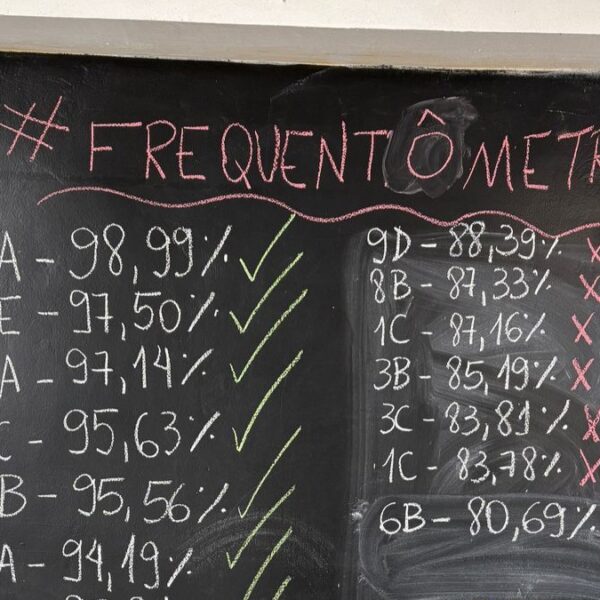 #FREQUENTÔMETR
A - 98,99%
E - 97,50%
A - 97,14%
C - 95,63%
B - 95,56%
A - 94,19%
9D - 88,39% X
8B - 87,33% X
1C - 87,16% X
3B - 85,19% X
3C - 83,81% X
1C - 83,78% X
6B - 80,69%